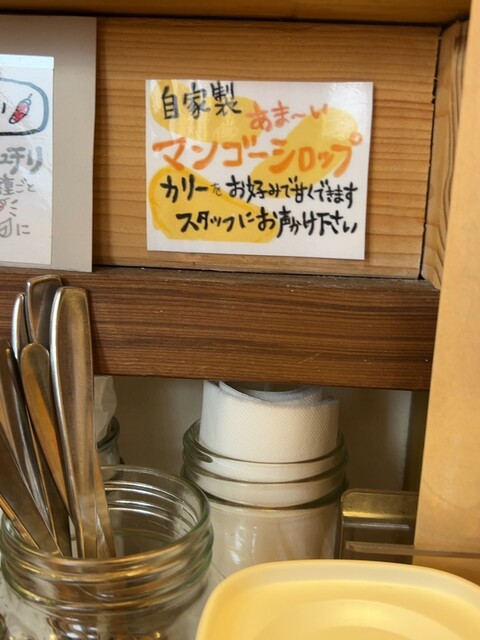 自家製
あま〜い
マンゴーシロップ
カリーをお好みで甘くできます
スタッフにお声かけ下さい
い
ユチリ
ごと
に